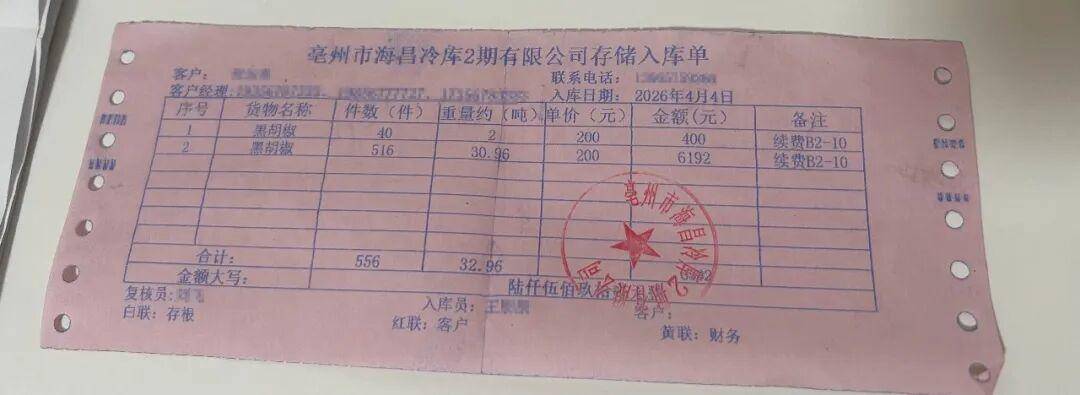 亳州市海昌冷库2期有限公司存储入库单
客户： 联系电话：
客户经理： 入库日期： 2026年4月4日
序号 货物名称 件数（件） 重量约（吨） 单价（元） 金额(元) 备注
1 黑胡椒 40 2 200 400 续费B2-10
2 黑胡椒 516 30.96 200 6192 续费B2-10
合计： 556 32.96
金额大写： 陆仟伍佰玖拾
复核员： 入库员： 客户：
白联：存根 红联：客户 黄联：财务
亳州市海昌冷库2期有限公司